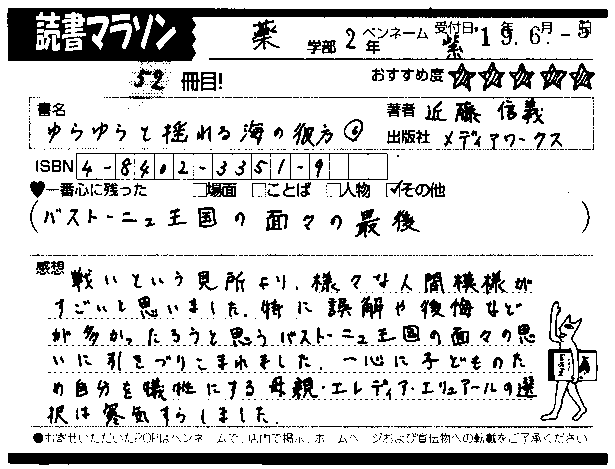 読書マラソン
薬 学部 2年 ペンネーム 紫 受付日 '19.6月-5日
52 冊目! おすすめ度 ★★★★★
書名 ゆらゆらと揺れる海の彼方⑥
著者 近藤信義
出版社 メディアワークス
ISBN 4-8402-3351-9
♥一番心に残った □場面 □ことば □人物 ☑その他
(バストーニュ王国の面々の最後)
感想 戦いという見所より、様々な人間模様が
すごいと思いました。特に誤解や後悔など
が多かったろうと思うバストーニュ王国の面々の思
いに引きづりこまれました。一心に子どものた
め自分を犠牲にする母親・エレディア・エリュアールの選
択は寒気すらしました。
●お寄せいただいたPOPはペンネームで、店内で掲示、ホームページおよび宣伝物への転載をご了承ください